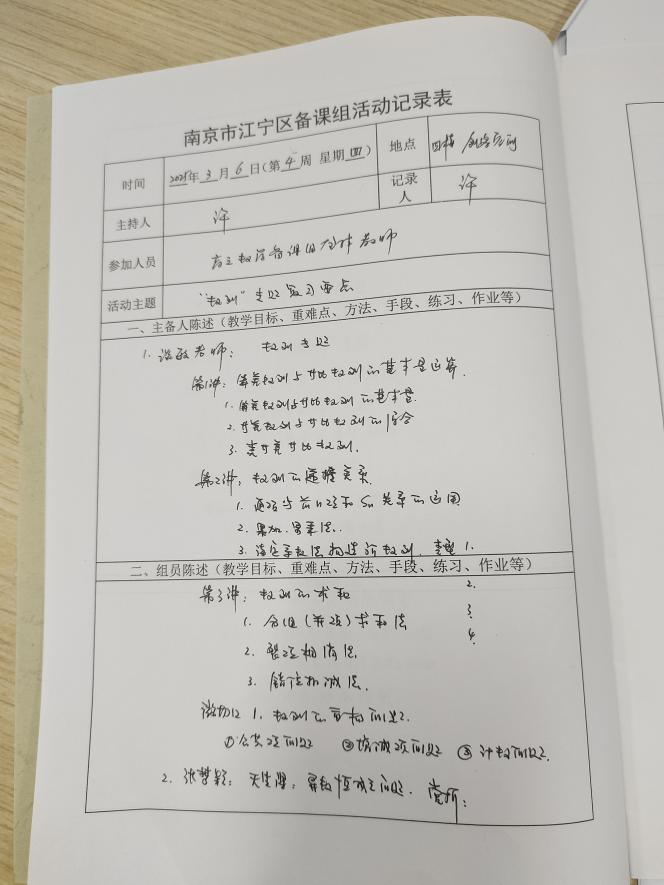 南京市江宁区备课组活动记录表
时间 2025年3月6日(第4周 星期四) 地点 四楼
主持人 许 记录人 许
参加人员 高三数学备课组全体教师
活动主题 "数列"专题复习要点
一、主备人陈述（教学目标、重难点、方法、手段、练习、作业等）
1. 老师： 数列专题
第1讲：等差数列与等比数列的基本量运算.
1. 等差数列与等比数列的基本量.
2. 等差数列与等比数列的综合
3. 类等差等比数列.
第2讲：数列的递推关系.
1. 通项与前n项和Sn关系的运用
2. 累加.累乘法.
3. 待定系数法构造新数列. 类型 1.
二、组员陈述（教学目标、重难点、方法、手段、练习、作业等）
2.
第3讲：数列的求和
3.
1. 分组(并项)求和法
4.
2. 裂项相消法.
3. 错位相减法.
微切口 1. 数列的重构问题.
①公共项问题 ②增减项问题 ③计数问题.
2. 张梦颖：